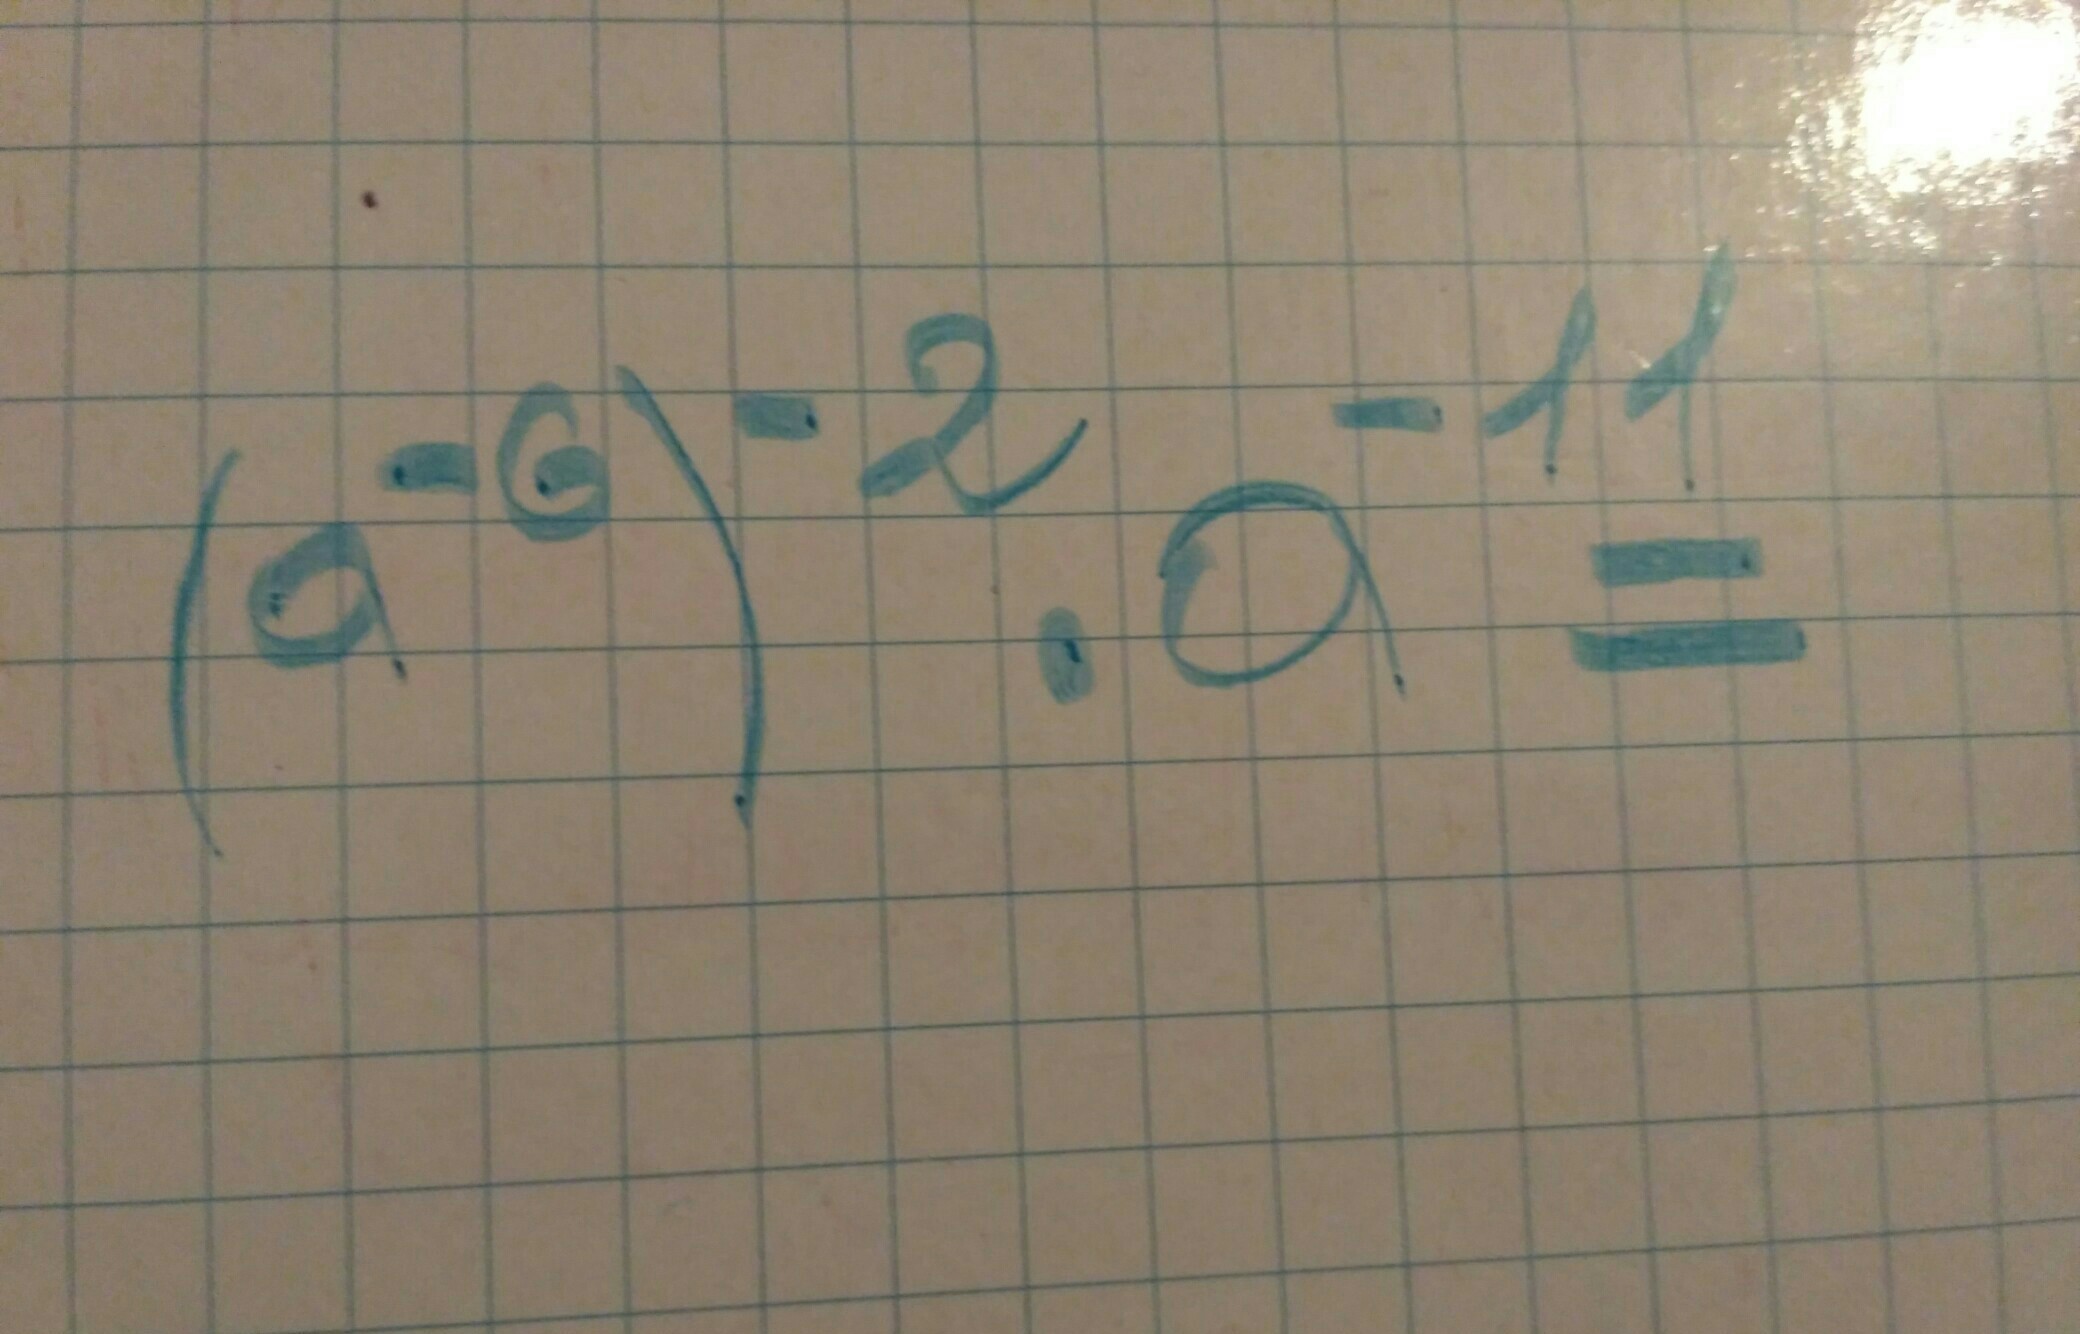 (a⁻⁶)⁻² · a⁻¹¹ =